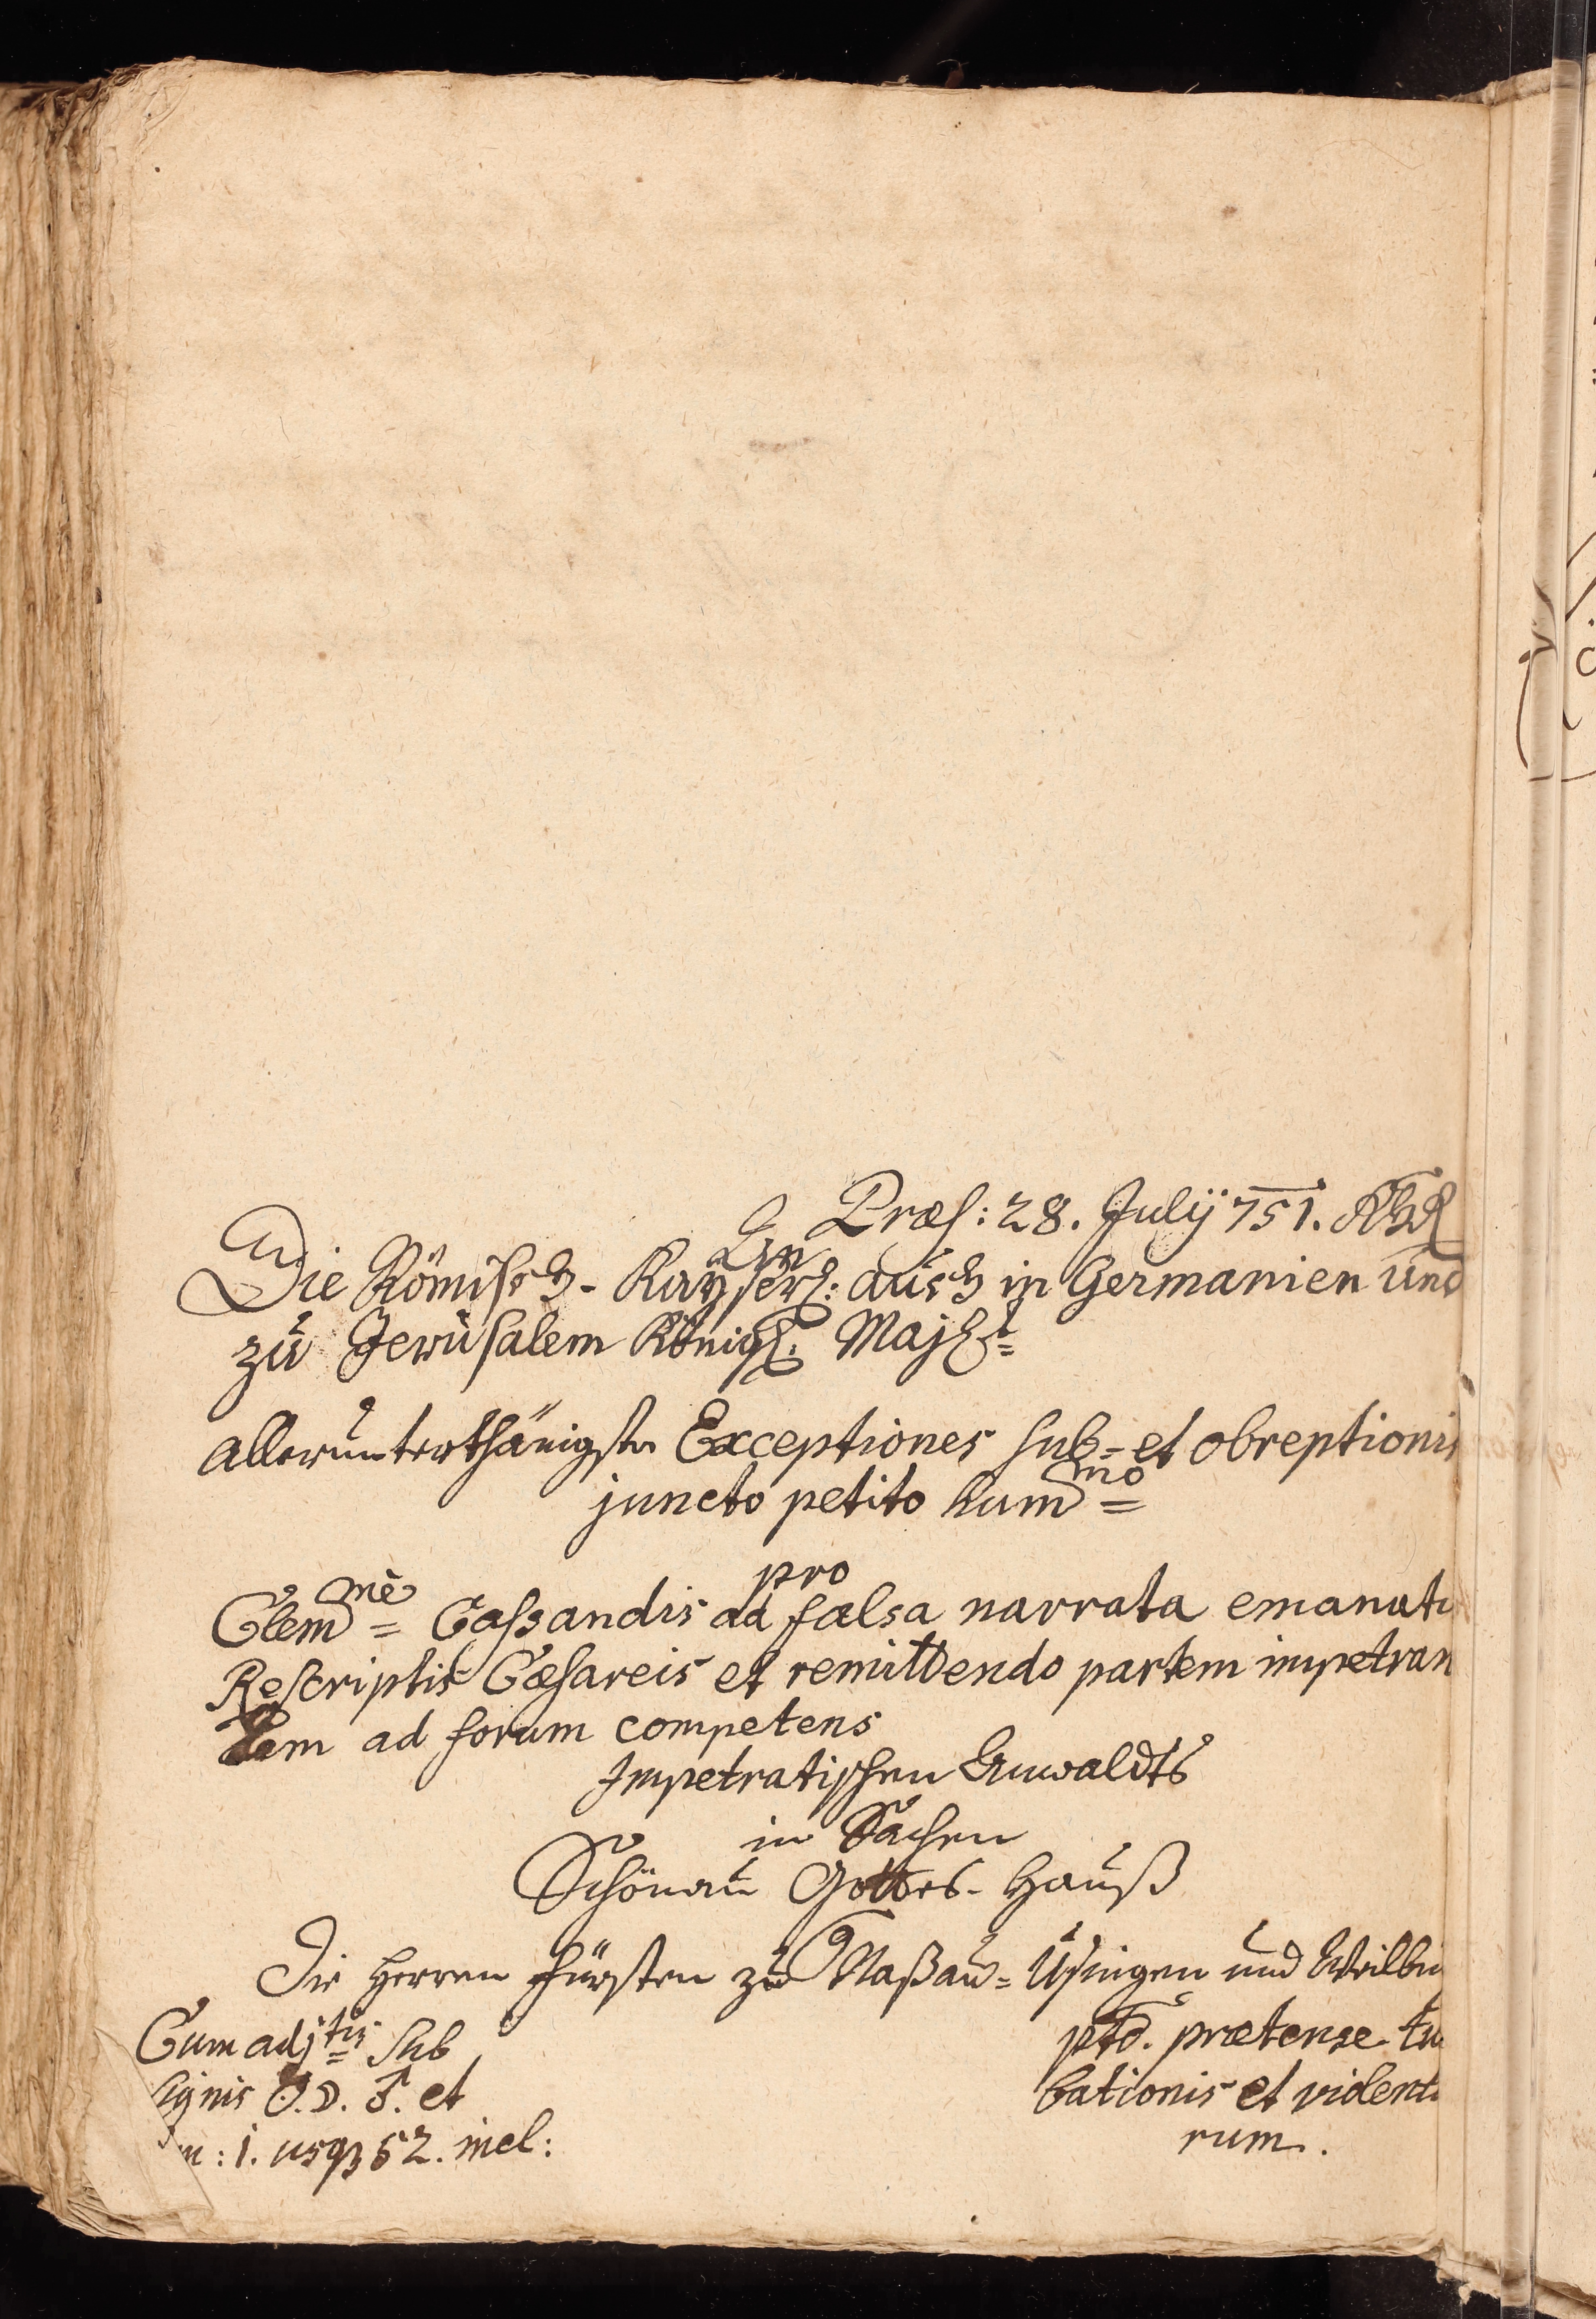 Præs: 28. Julÿ 751.
An
Die Römisch-Kaÿserl: auch in Germanien und
zu Jerusalem Königl. Majest=
allerunterthänigste Exceptiones sub- et obreptionis
juncto petito hum mo =
pro
Clem mè = Cassandis ad falsa narrata emanati
Rescriptis Cæsareis et remittendo partem impetran
tem ad forum competens
Impetratischen Anwaldts
in Sachen
Schönau Gottes-Hauß
Die Herren Fürsten zu Naßau-Usingen und Weilbu
Cum adj tis = sub
signis O. D. F. et
n: 1. usq 52. incl:
pto. prætensæ tu
bationis et violent
rum.